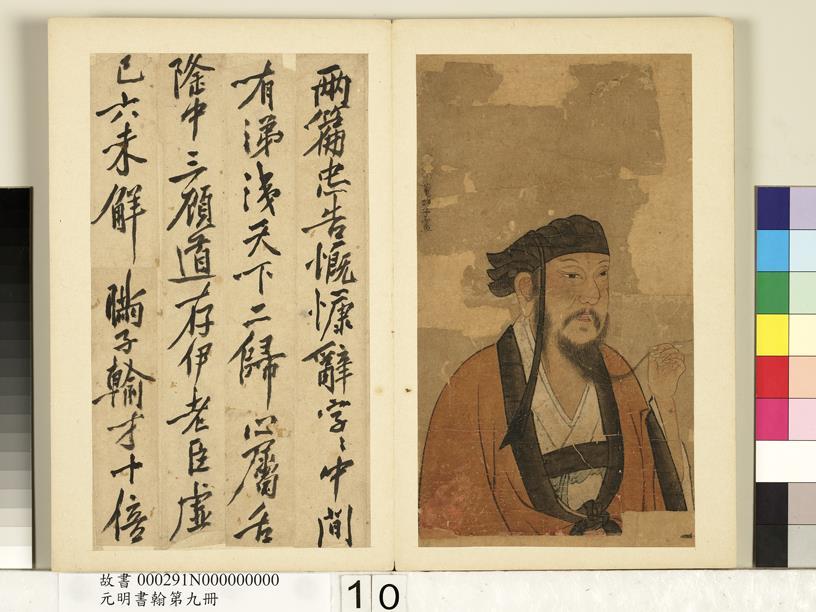 兩篇忠告慨慷辭字〻中間
有涕洟天下二歸心屬
隆中三顧道存伊老臣虛
已六未解瞞子翰才十倍
故書 000291N000000000
元明書翰第九冊
10